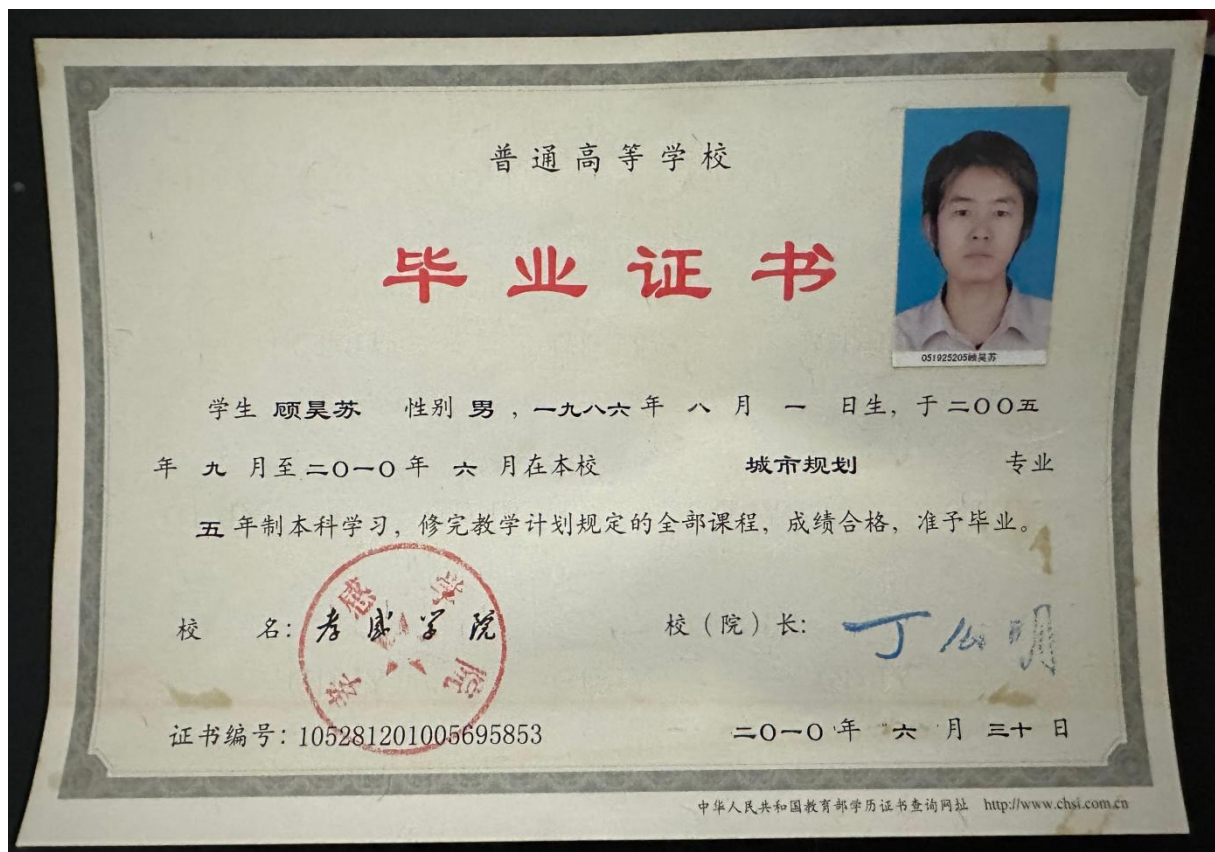 普通高等学校
毕业证书
051925205顾昊苏
学生 顾昊苏 性别 男 ，一九八六 年 八 月 一 日生，于 二〇〇五
年 九 月至 二〇一〇 年 六 月在本校 城市规划 专业
五 年制本科学习，修完教学计划规定的全部课程，成绩合格，准予毕业。
校 名：孝感学院
孝感学院
校（院）长：
证书编号：105281201005695853
二〇一〇 年 六 月 三十 日
中华人民共和国教育部学历证书查询网址 http://www.chsi.com.cn